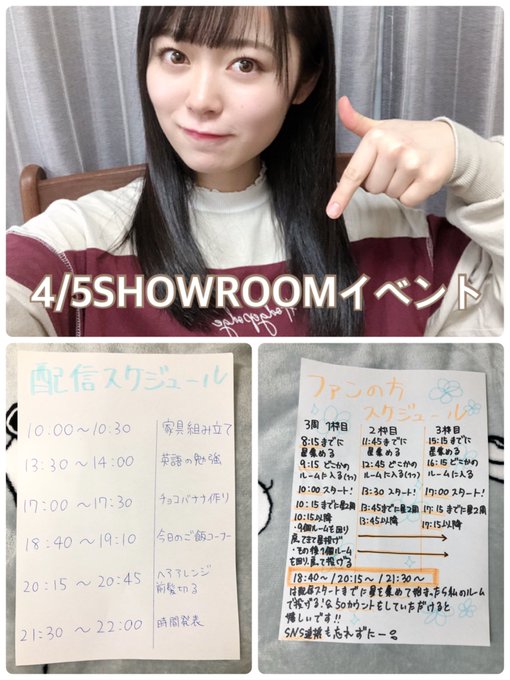 4/5SHOWROOMイベント
配信スケジュール
10:00～10:30 家具組み立て
13:30～14:00 英語の勉強
17:00～17:30 チョコバナナ作り
18:40～19:10 今日のご飯コーナー
20:15～20:45 ヘアアレンジ
前髪切る
21:30～22:00 時間発表
ファンの方
スケジュール
3周 1枠目
8:15までに
星集める
9:15 どこかの
ルームに入る
10:00 スタート!
10:15までに星2周
10:15以降
・その後1個ルーム
2枠目
11:45までに
星集める
12:45 どこかの
ルームに入る
13:30 スタート!
13:45までに星2周
13:45以降
3枠目
15:15までに
星集める
16:15 どこかの
ルームに入る
17:00 スタート!
17:15以降
18:40～/20:15～/21:30～
は配信スタートまでに星を集めて始まったら私のルーム
で投げる!&50カウントをしていただけると
嬉しいです!!
SNS連携も忘れずにー